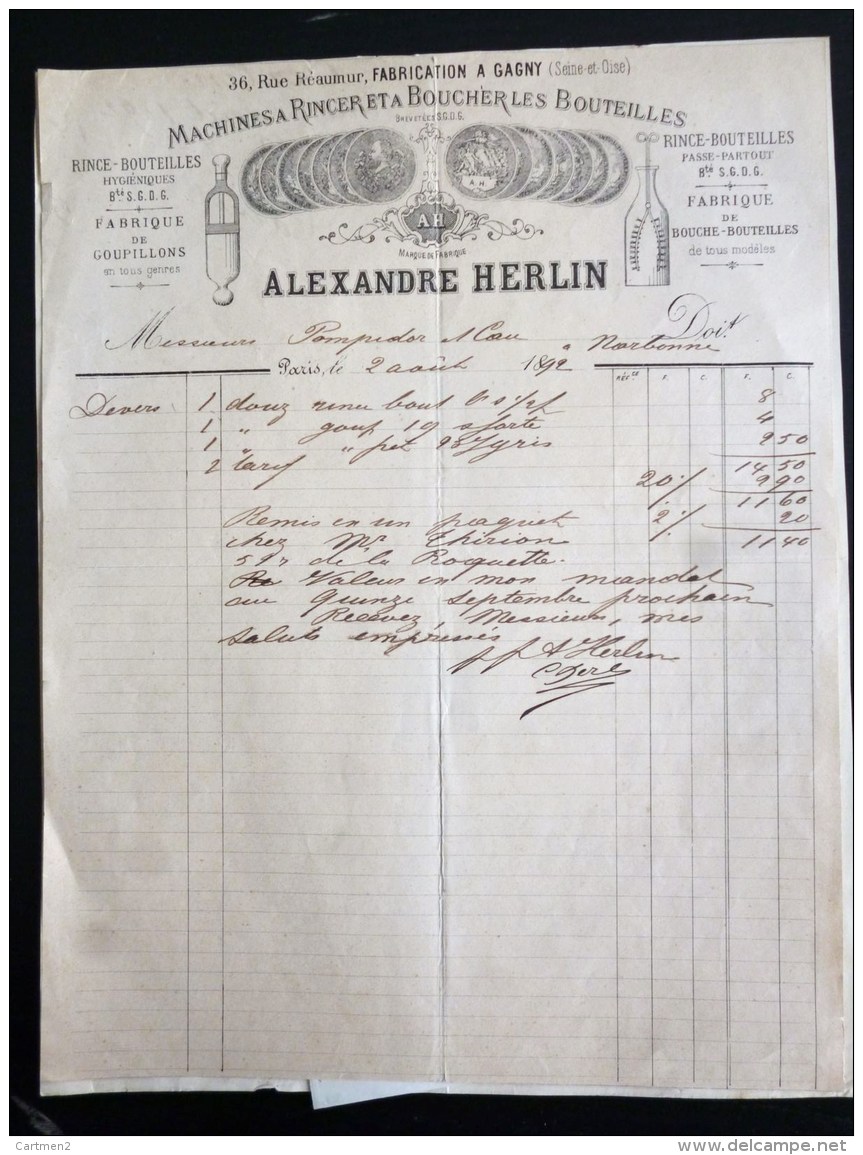 36, Rue Réaumur, FABRICATION A GAGNY (Seine-et-Oise)
MACHINES A RINCER ET A BOUCHER LES BOUTEILLES
BREVETÉES S.G.D.G.
RINCE-BOUTEILLES
HYGIÉNIQUES
Bté S.G.D.G.
FABRIQUE
DE
GOUPILLONS
en tous genres
A.H.
A.H.
MARQUE DE FABRIQUE
RINCE-BOUTEILLES
PASSE-PARTOUT
Bté S.G.D.G.
FABRIQUE
DE
BOUCHE-BOUTEILLES
de tous modèles
ALEXANDRE HERLIN
Doit
Messieurs Pompidor à Narbonne
Paris, le 2 août 1892
F. C. F. C.
Devers 1 douz bout 8
1 " goup 19 sforte 4
1 " " pet gris 2 50
2 tarif 14 50
20 % 2 90
11 60
Remis en un paquet 2 % 20
chez Mr Thirion 11 40
59 r de la Roquette.
Valeur en mon mandat
au quinze septembre prochain
Recevez, Messieurs, mes
saluts empressés
A Herlin
Cartmen2
www.delcampe.net